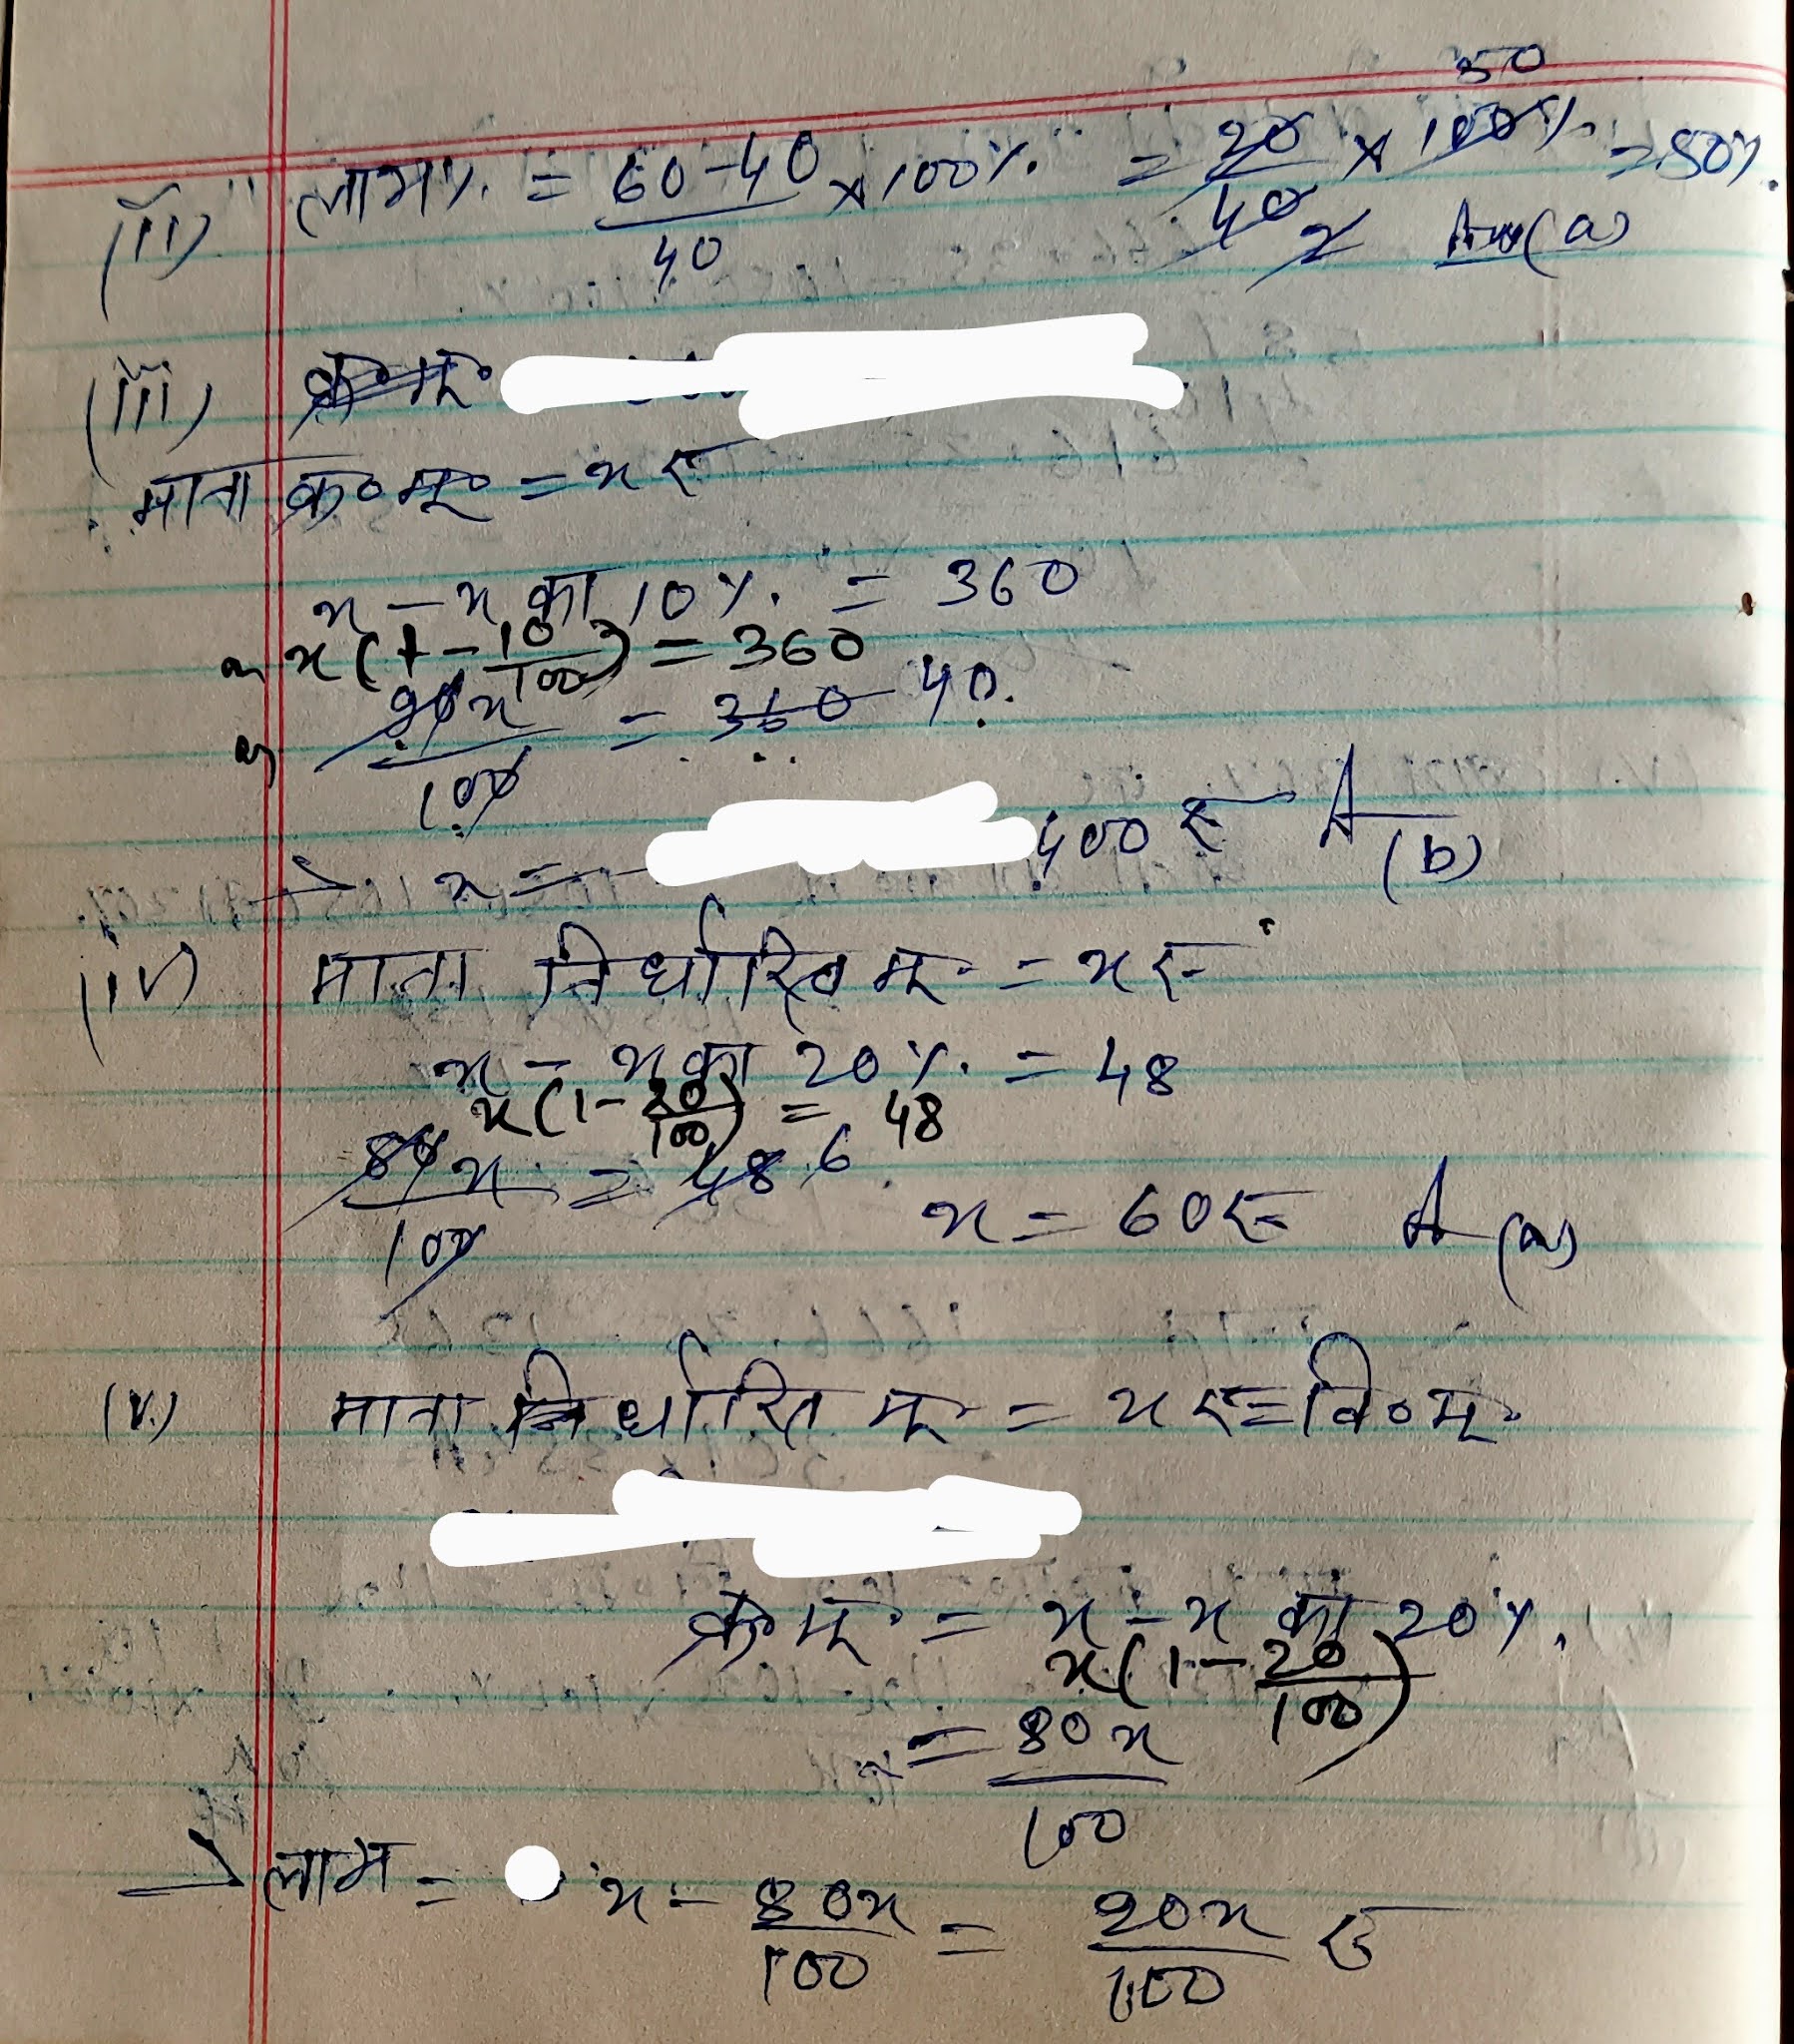 (ii) लाभ% = 60-40/40 × 100% = 20/40 × 100% = 50% 50 2 Ans (a)
(iii) क्र०मू०
माना क्र०मू० = x रु
x - x का 10% = 360
या x(1 - 10/100) = 360
या 90x/100 = 360 40
→ x = 400 रु A (b)
(iv) माना निर्धारित मू० = x रु
x - x का 20% = 48
x(1 - 20/100) = 48
80x/100 = 48 6 x = 60 रु A (a)
(v) माना निर्धारित मू० = x रु = वि०मू०
क्र०मू० = x - x का 20%
x(1 - 20/100)
= 80x/100
→ लाभ = x - 80x/100 = 20x/100 रु